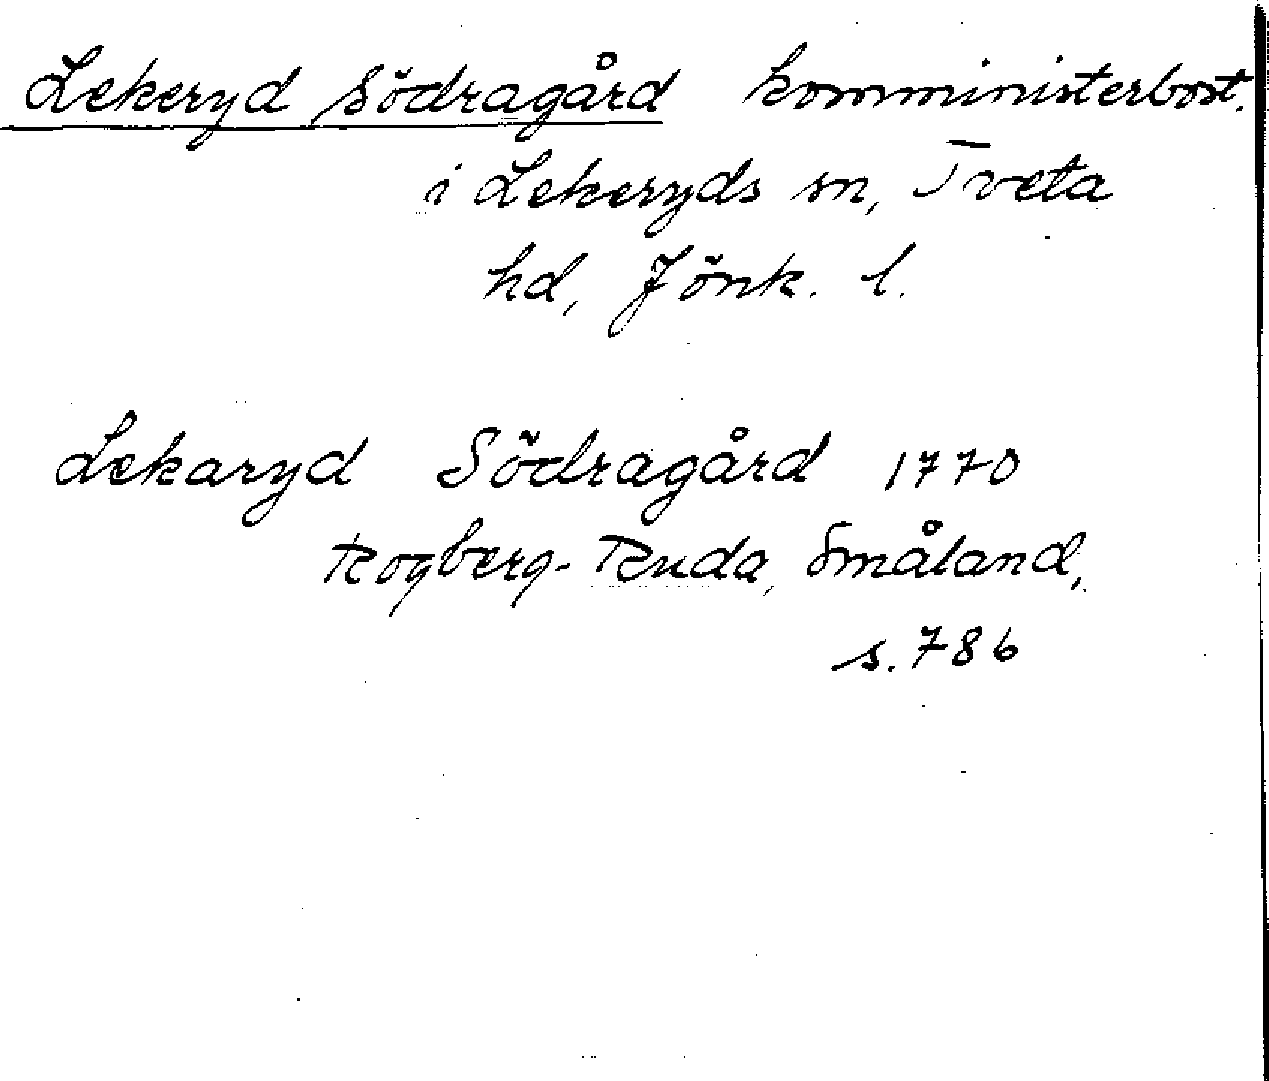 Lekeryd Södragård komministerbost.
i Lekeryds sn, Tveta
hd, Jönk. l.
Lekaryd Södragård 1770
Rogberg-Ruda, Småland,
s. 786